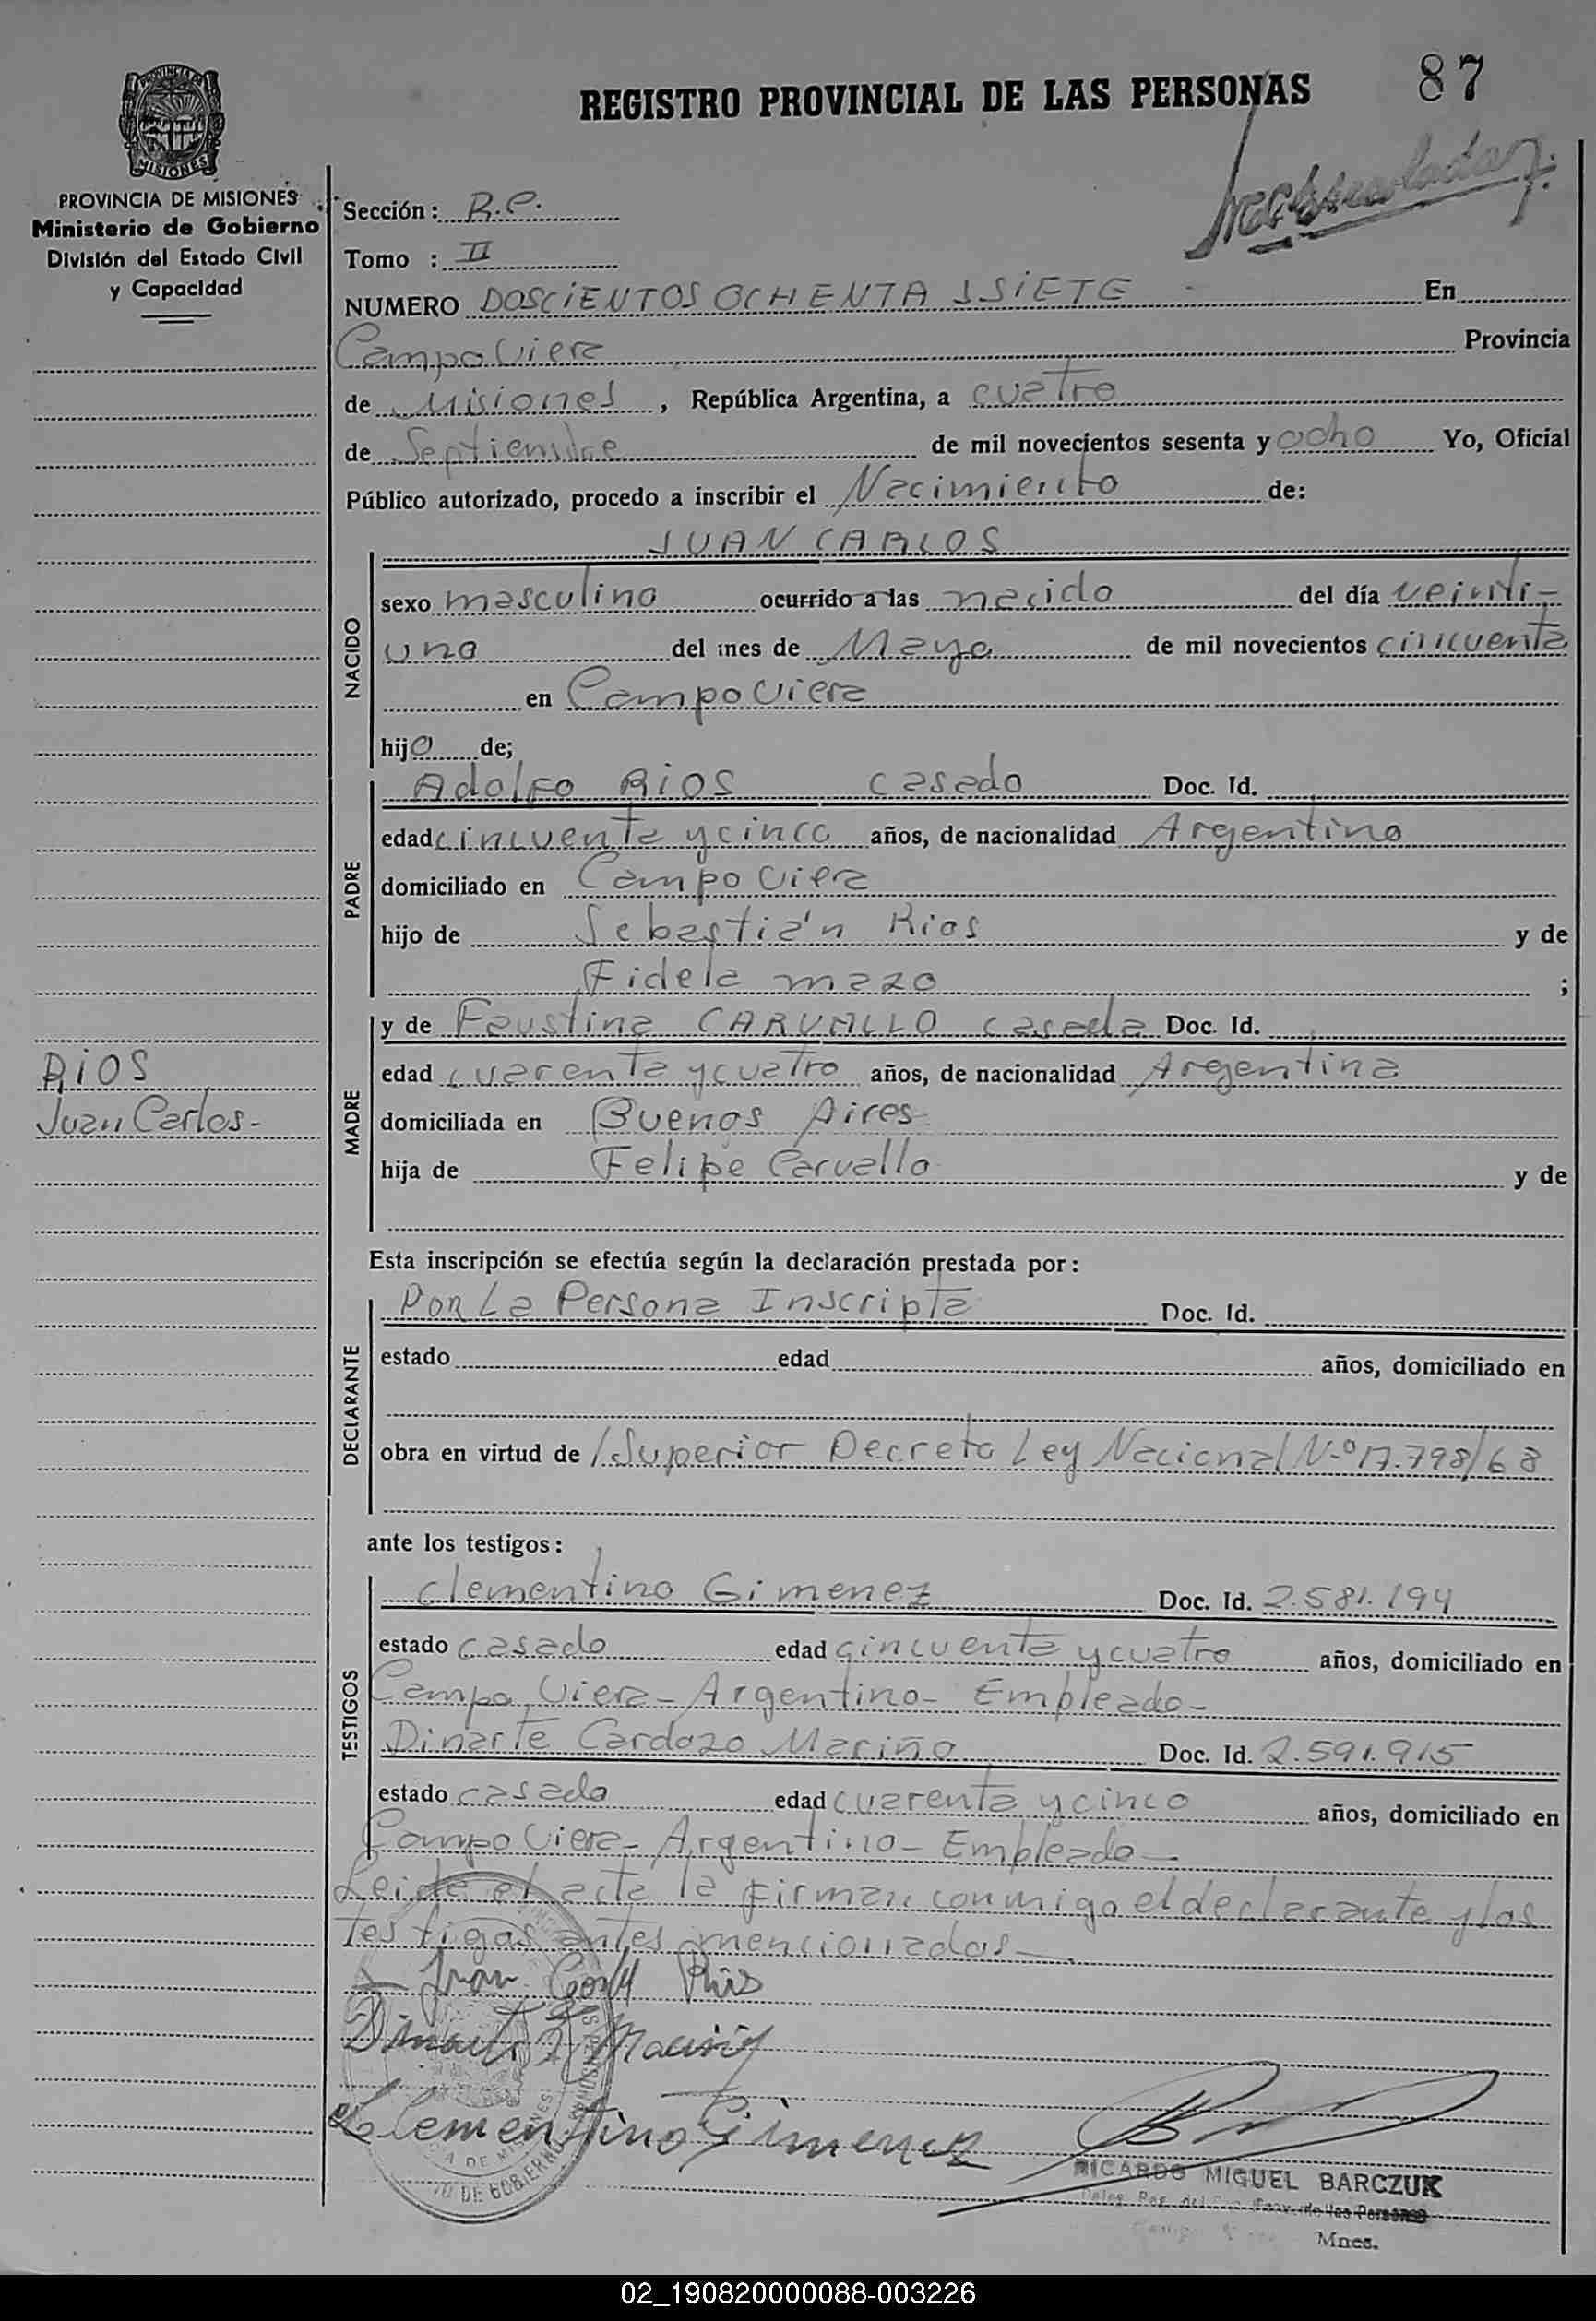 87
REGISTRO PROVINCIAL DE LAS PERSONAS
PROVINCIA DE MISIONES
MISIONES
PROVINCIA DE MISIONES
Ministerio de Gobierno
División del Estado Civil
y Capacidad
Sección: R.C.
Tomo : II
NUMERO DOSCIENTOS OCHENTA Y SIETE - En
Campo Viera Provincia
de Misiones, República Argentina, a cuatro
de Septiembre de mil novecientos sesenta y ocho Yo, Oficial
Público autorizado, procedo a inscribir el Nacimiento de:
JUAN CARLOS
NACIDO
sexo masculino ocurrido a las nacido del día veinti-
uno del mes de Mayo de mil novecientos cincuenta
en Campo Viera
hijo de;
PADRE
Adolfo RIOS casado Doc. Id.
edad cincuenta y cinco años, de nacionalidad Argentino
domiciliado en Campo Viera
hijo de Sebastián Rios y de
Fidela mazo ;
MADRE
y de Faustina CARVALLO casada Doc. Id.
edad cuarenta y cuatro años, de nacionalidad Argentina
domiciliada en Buenos Aires
hija de Felipe Carvallo y de
RIOS
Juan Carlos-
Esta inscripción se efectúa según la declaración prestada por:
DECLARANTE
Por La Persona Inscripta Doc. Id.
estado edad años, domiciliado en
obra en virtud de / Superior Decreto Ley Nacional N.º 17.798/68
ante los testigos:
TESTIGOS
Clementino Gimenez Doc. Id. 2.581.194
estado casado edad cincuenta y cuatro años, domiciliado en
Campo Viera- Argentino- Empleado-
Dinarte Cardozo Mariño Doc. Id. 2.591.915
estado casado edad cuarenta y cinco años, domiciliado en
Campo Viera- Argentino- Empleado-
Leida el acta la firman conmigo el declarante y los
testigos antes mencionados-
Juan Rios
Clementino Gimenez
RICARDO MIGUEL BARCZUK
de las Personas
Mnes.
02_190820000088-003226